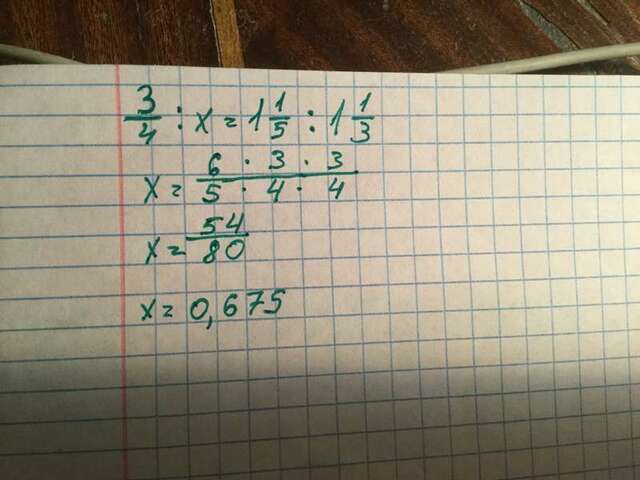 3/4 : x = 1 1/5 : 1 1/3
x = 6 · 3 · 3 / 5 · 4 · 4
x = 54/80
x = 0,675